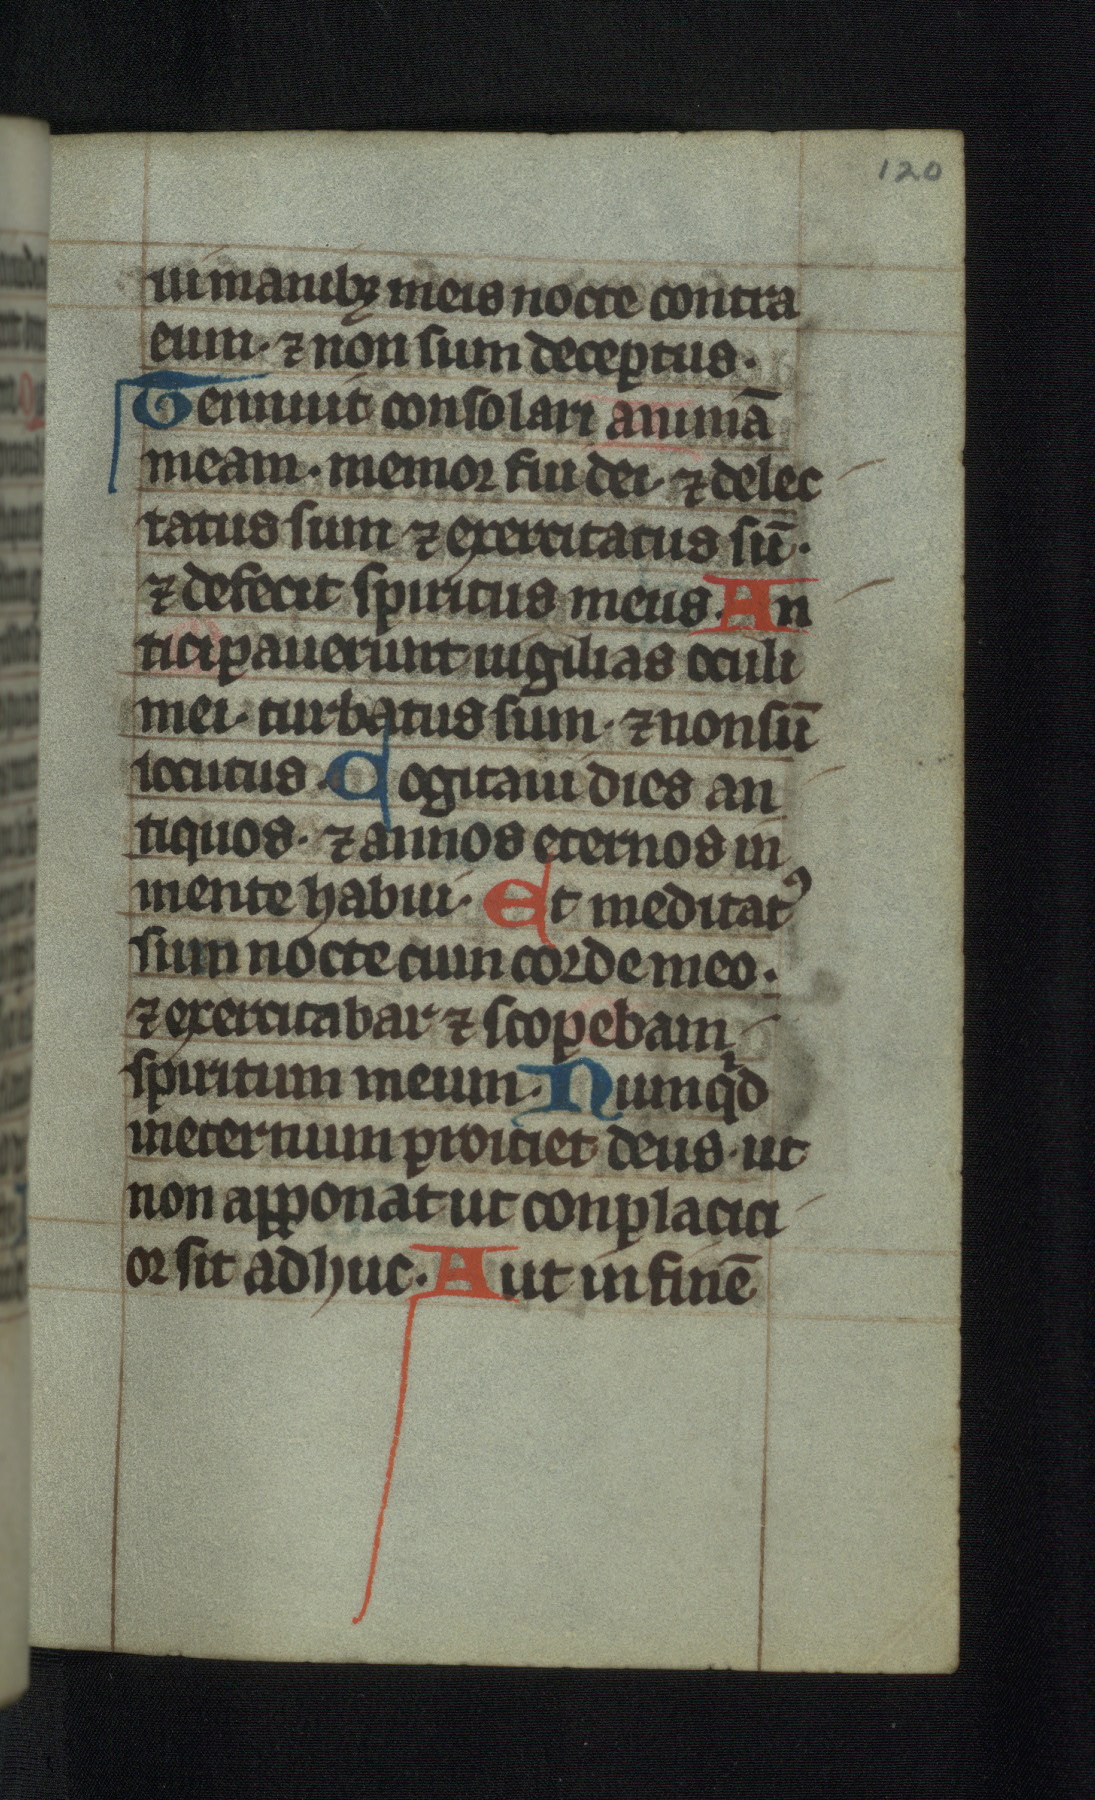 120
ui manibꝫ meis nocte contra
eum · ⁊ non sum deceptus ·
Rennuit consolari animā
meam · memor fui dei · ⁊ delec
tatus sum ⁊ exercitatus sū ·
⁊ defecit spiritus meus · An
ticipauerunt uigilias oculi
mei · turbatus sum · ⁊ non sū
locutus · Cogitaui dies an
tiquos · ⁊ annos eternos in
mente habui · Et meditatꝰ
sum nocte cum corde meo ·
⁊ exercitabar ⁊ scopebam
spiritum meum · Numqͥd
ineternum proiciet deus · ut
non apponat ut conplaciti
or sit adhuc · Aut in finē